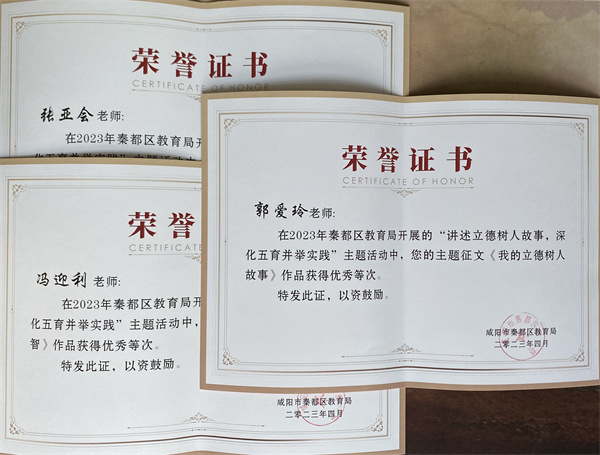 荣誉证书
CERTIFICATE OF HONOR
张亚会老师:
在2023年秦都区教育局开
化五育并举实践”主题活动中
荣誉证书
CERTIFICATE OF HONOR
郭爱玲老师:
在2023年秦都区教育局开展的“讲述立德树人故事,深
化五育并举实践”主题活动中,您的主题征文《我的立德树人
故事》作品获得优秀等次。
特发此证,以资鼓励。
咸阳市秦都区教育局
二〇二三年四月
荣誉证
CERTIFICATE
冯迎利老师:
在2023年秦都区教育局
化五育并举实践”主题活动中,
智》作品获得优秀等次。
特发此证,以资鼓励。
咸阳市秦都区教育局
二〇二三年四月